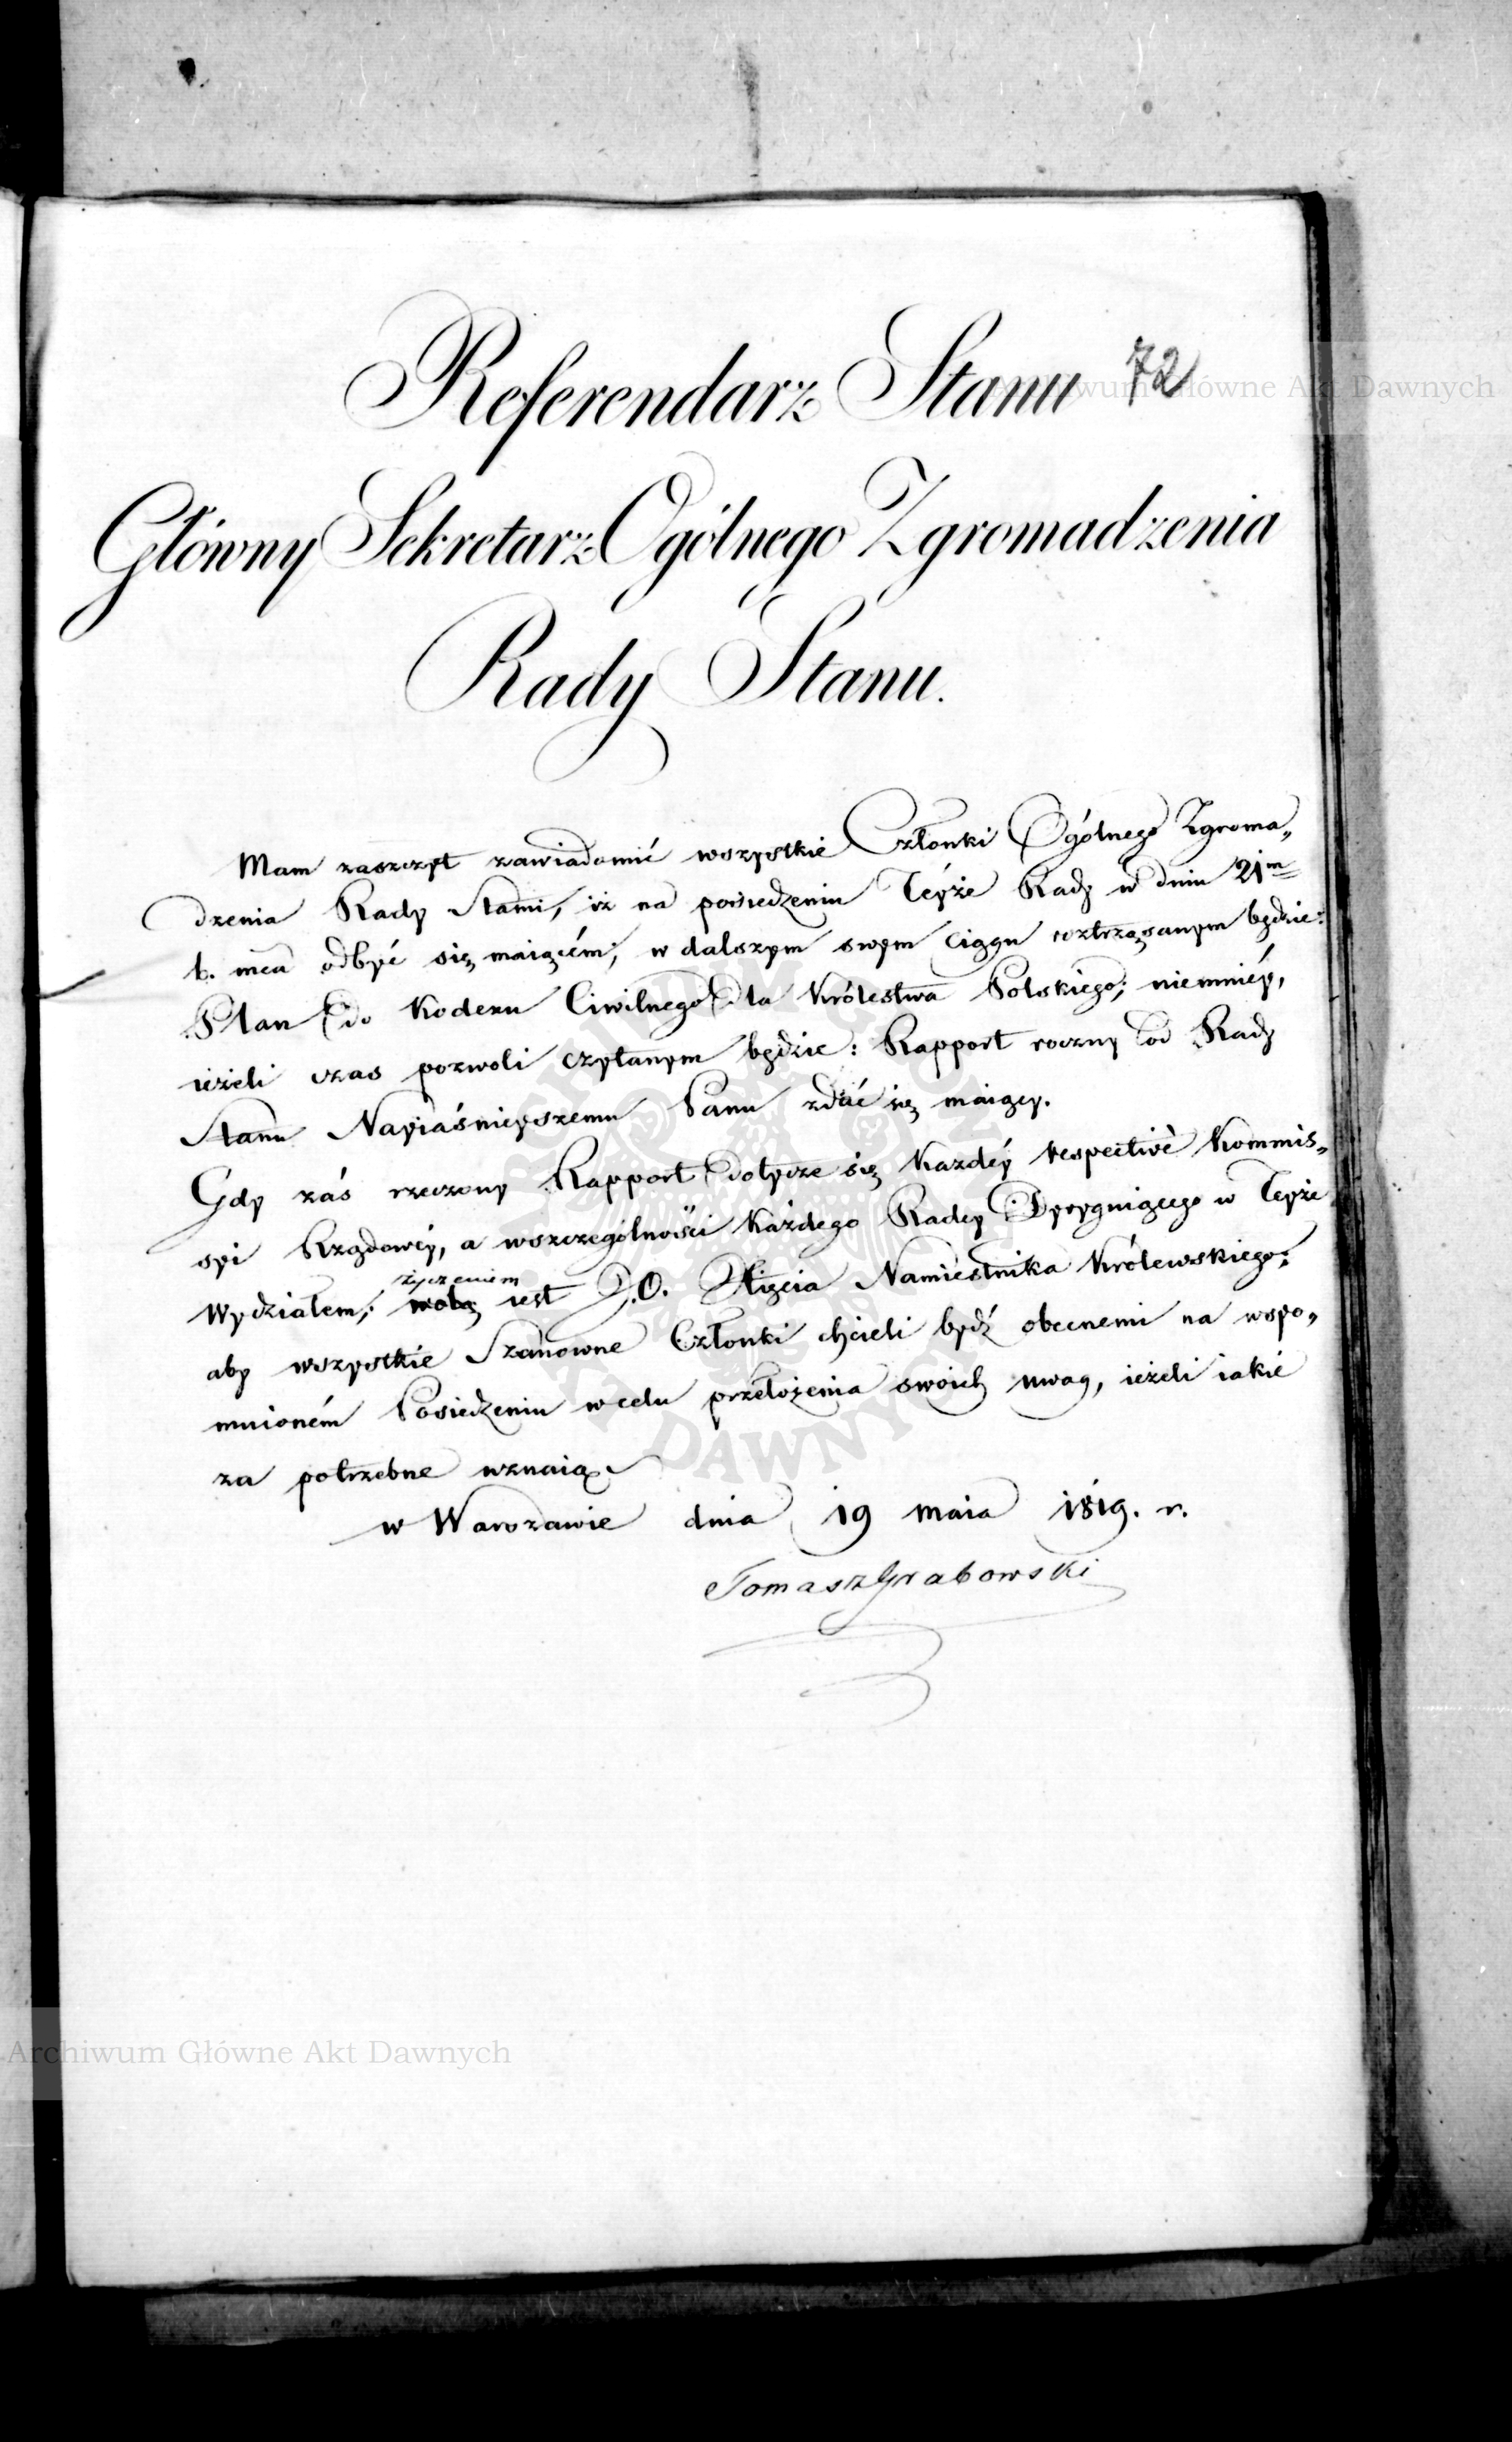 Referendarz Stanu 72
Główny Sekretarz Ogólnego Zgromadzenia
Rady Stanu.
Mam zaszczyt zawiadomić wszystkie Członki Ogólnego Zgroma„
dzenia Rady Stanu, iż na posiedzeniu Teyże Rady w dniu 21m
b. mca odbyć się maiącém, w dalszym swym ciągu roztrząsanym będzie:
Plan do Kodexu Ciwilnego dla Królestwa Polskiego; niemniéy,
ieżeli czas pozwoli czytanym będzie: Rapport roczny od Rady
Stanu Nayiaśnieyszemu Panu zdać się maiący.
Gdy zaś rzeczony Rapport dotycze się każdéy respective Kommis„
syi Rządowéy, a wszczególności każdego Radcy Dyryguiącego w Teyże
życzeniem
Wydziałem; wolą iest J.O. Xięcia Namiestnika Królewskiego;
aby wszystkie Szanowne Członki chcieli bydź obecnemi na wspo„
mnioném Posiedzeniu w celu przełożenia swoich uwag, ieżeli iakie
za potrzebne uznaią.
w Warszawie dnia 19 maia 1819. r.
Tomasz Grabowski
Archiwum Główne Akt Dawnych
Archiwum Główne Akt Dawnych